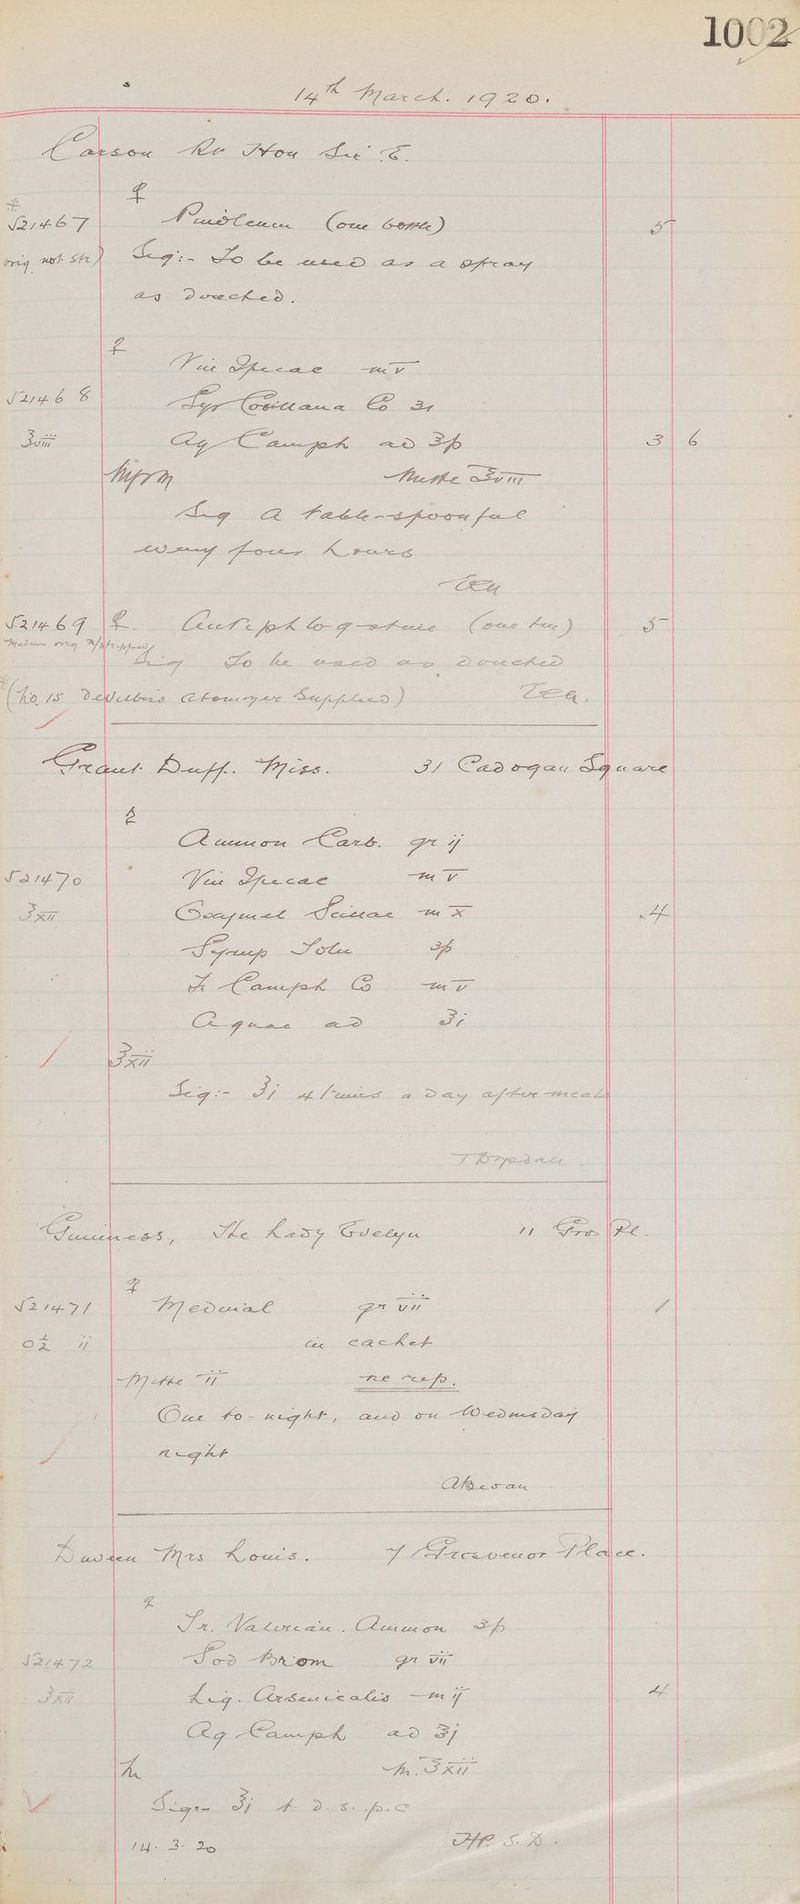 1002
14th March. 1920.
Carson Rt Hon Sir E.
℞
521467 Pinoleum (one bottle) 5
orig. not. str) Sig:- To be used as a spray
as directed.
℞
Vin Ipecac m v
521468 Syr Cocillana Co ʒi
℥viii Aq Camph ad ℥ſs 3 6
Mitte ℥viii
Sig A table-spoonful
every four hours
521469 ℞ Antiphlogistine (one tin) 5
Medium orig
Sig To be used as directed
(No. 15 DeVilbiss atomyzer Supplied)
Grant Duff. Miss. 31 Cadogan Square
℞
Ammon Carb. gr ij
521470 Vin Ipecac m v
℥xii Oxymel Scillae m x 4
Syrup Tolu ʒſs
Tr Camph Co m v
Aquae ad ℥i
℥xii
Sig:- ℥i 4 times a day after meals
Guinness, The Lady Evelyn 11 Gros Pl.
℞
521471 Medinal gr vii 1
ii in cachet
Mitte ii ne rep.
One to-night, and on Wednesday
night
Duveen Mrs Louis. 7 Grosvenor Place.
℞
Tr. Valerian. Ammon ʒſs
521472 Sod Brom gr vii
℥xii Liq. Arsenicalis m ij 4
Aq Camph ad ℥j
M. ℥xii
Sig:- ℥i t. d. s. p. c
14. 3. 20 H.P. S. D.